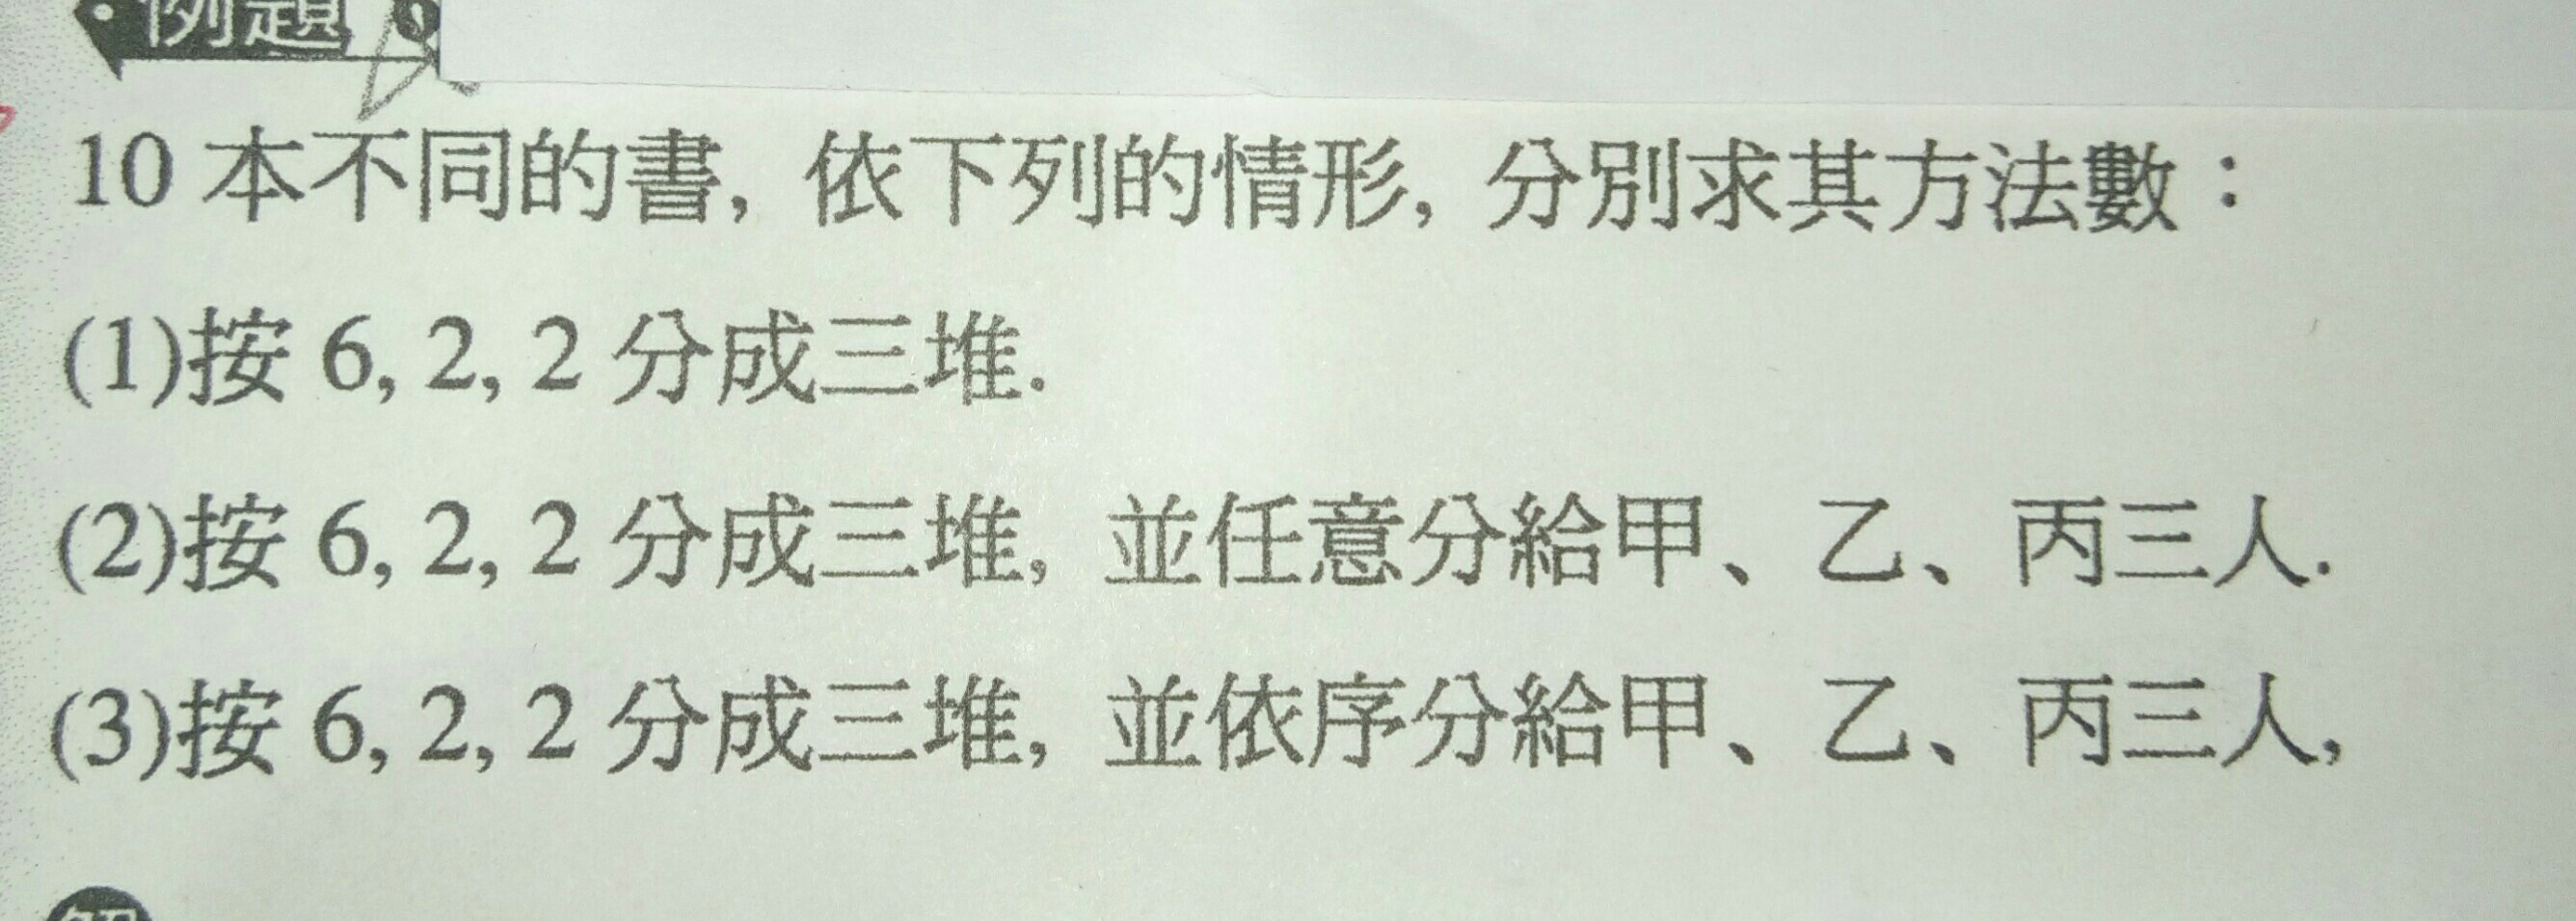 例題
10 本不同的書, 依下列的情形, 分別求其方法數：
(1)按 6, 2, 2 分成三堆.
(2)按 6, 2, 2 分成三堆, 並任意分給甲、乙、丙三人.
(3)按 6, 2, 2 分成三堆, 並依序分給甲、乙、丙三人,